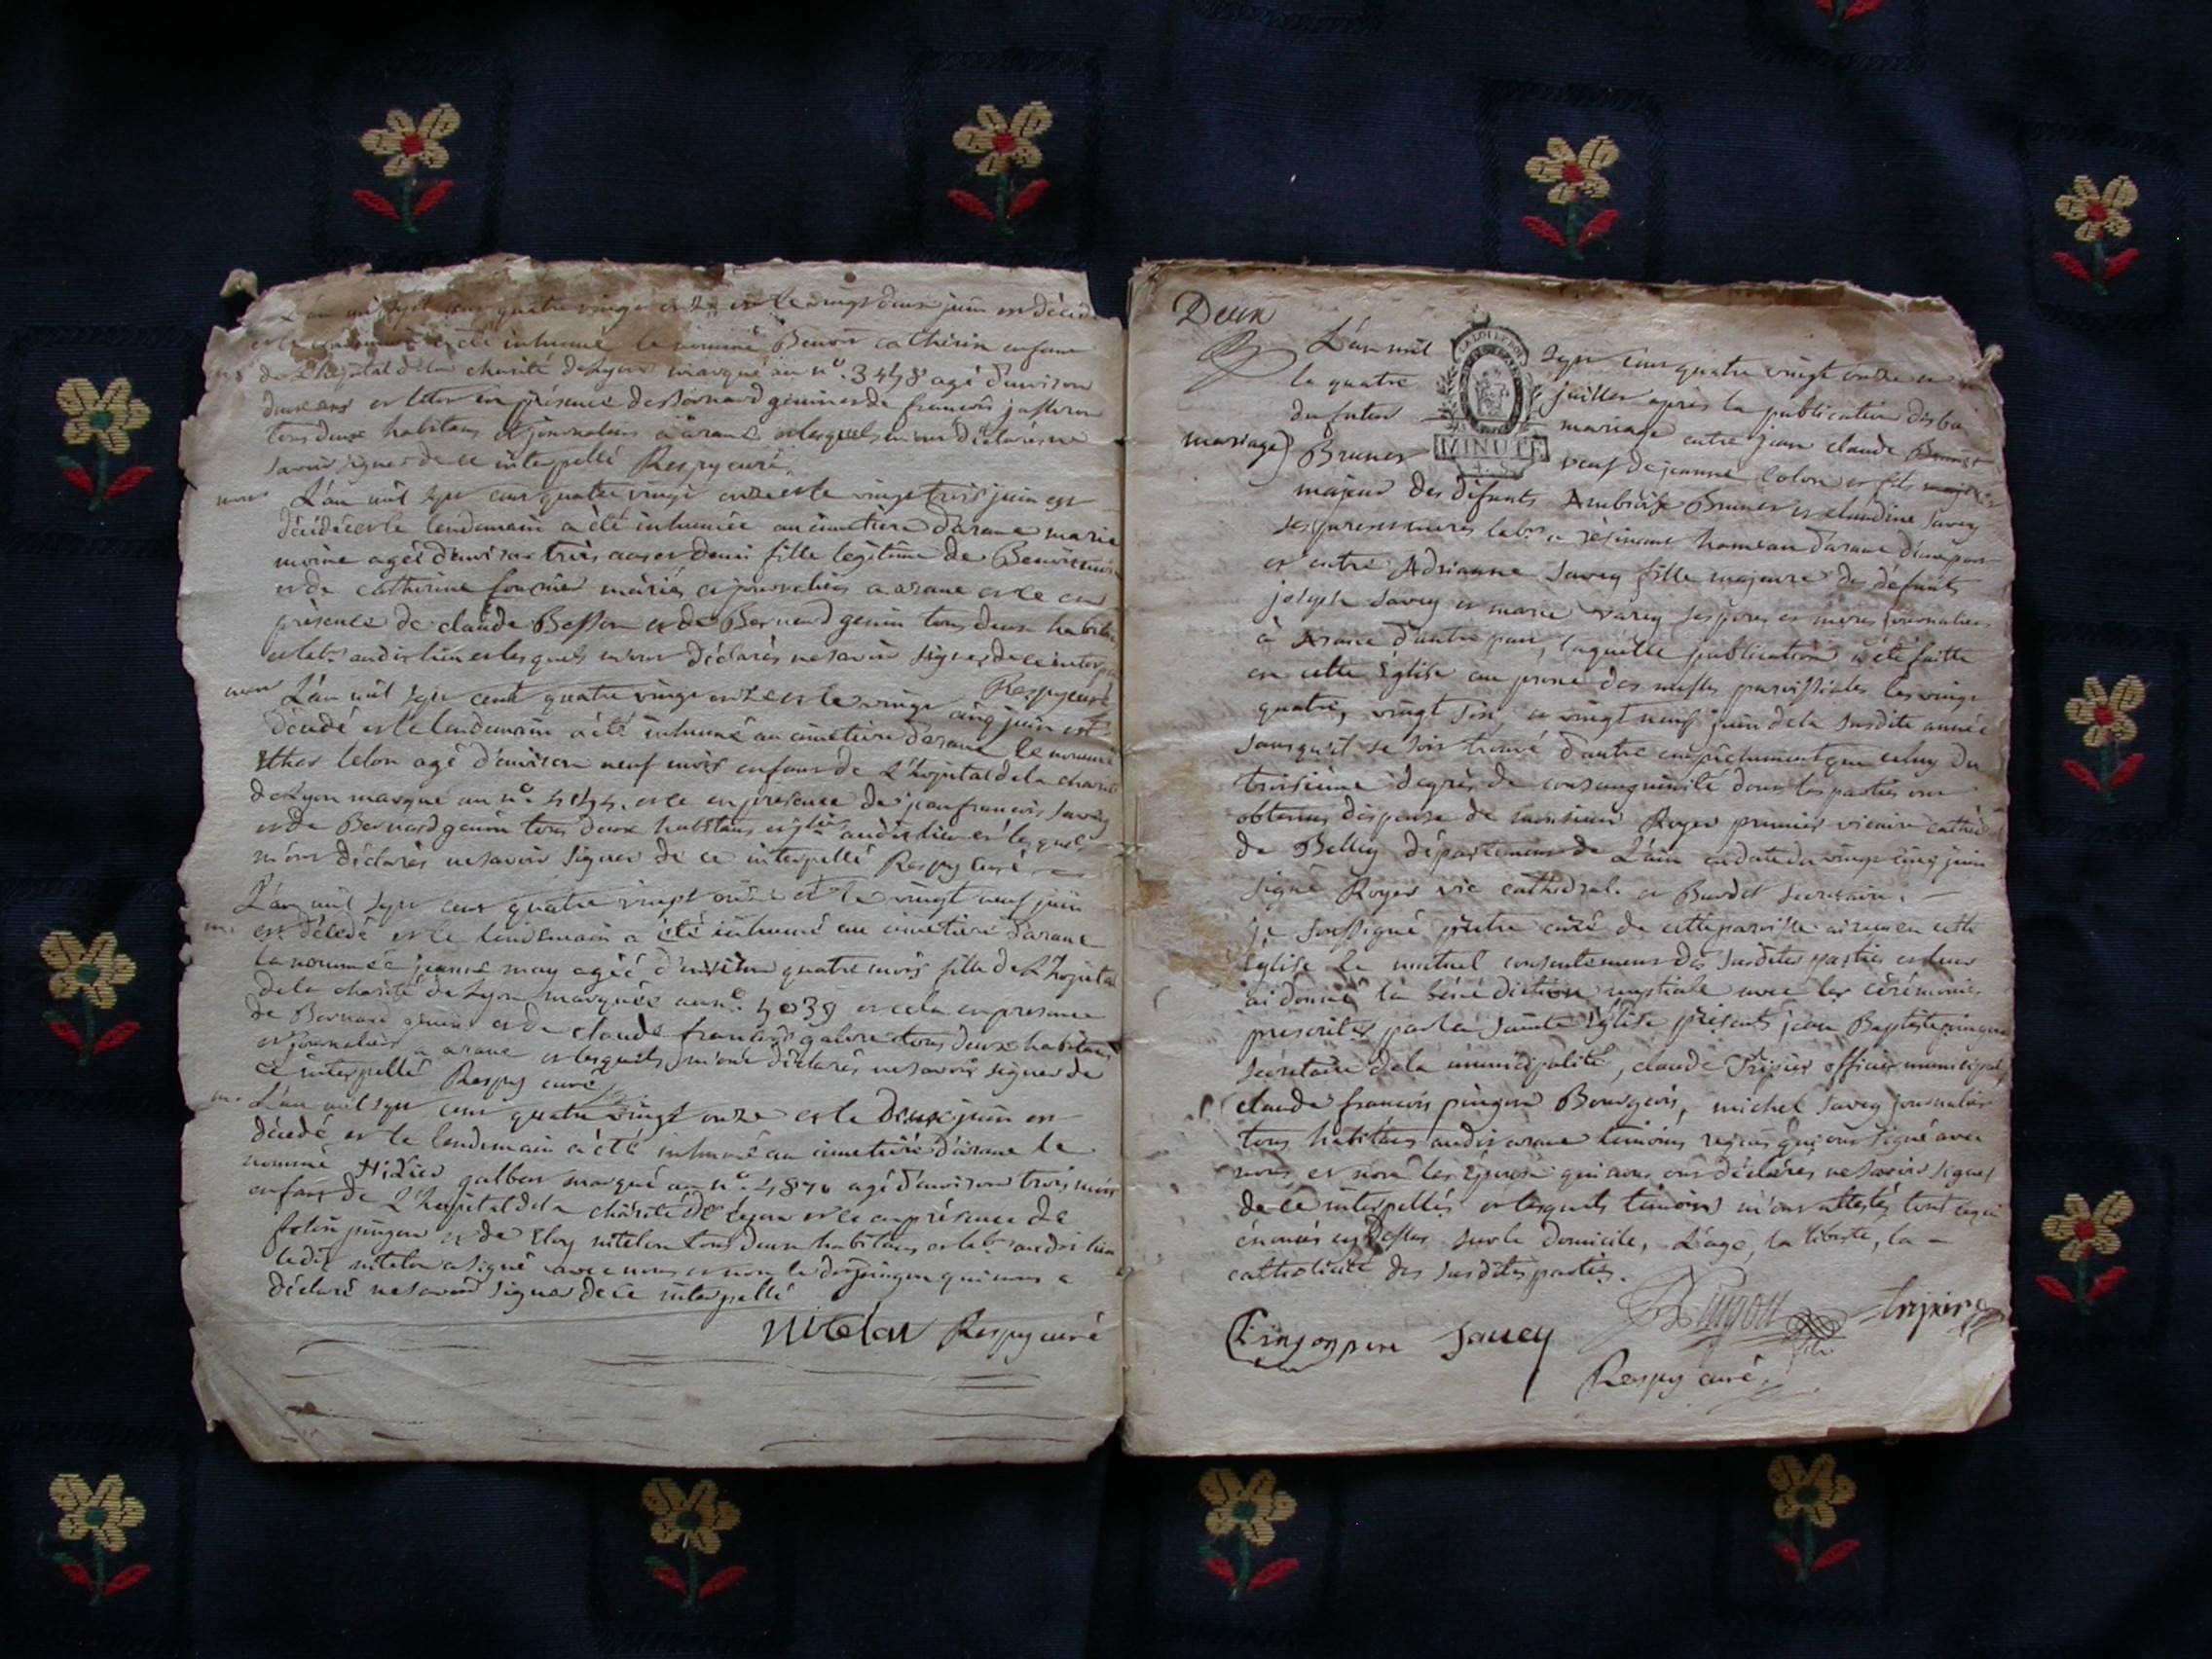 L'an mil sept cens quatre vingt onze et le vingt deux juin est décédé
et le lendemain a été inhumé le nommé Benoit Catherin enfant
de L'hopital de la charité de Lyon marqué au n°. 3448 agé d'environ
deux ans et cela en présence de Bernard genin et de françois
tous deux habitans et journaliers a arane lesquels m'ont déclarés ne
savoir signer de ce interpellé Respy curé.
mort L'an mil sept cens quatre vingt onze et le vingt trois juin est
décédée et le lendemain a été inhumée au cimetiere d'arane marie
moine agée d'environ trois ans et demi fille legitime de Benoit moine
et de catherine fournier mariés et journaliers a arane et ce en
présence de claude Besson et de Bernard genin tous deux habitans
et labr. audit lieu et lesquels m'ont déclarés ne savoir signer de ce interpellés
Respy curé
mort L'an mil sept cent quatre vingt onze et le vingt cinq juin est
décédé et le lendemain a été inhumé au cimetiere d'arane le nommé
lelon agé d'environ neuf mois enfant de L'hopital de la charité
de Lyon marqué au n°. et ce en présence de jean françois Savey
et de Bernard genin tous deux habitans audit lieu et lesquels
m'ont déclarés ne savoir signer de ce interpellé Respy curé
L'an mil sept cens quatre vingt onze et le vingt neuf juin
m. est décédé et le lendemain a été inhumé au cimetiere d'arane
la nommée jeanne may agée d'environ quatre mois fille de L'hopital
de la charité de Lyon marquée au n°. 5039 et cela en presence
de Bernard genin et de claude françois tous deux habitans
et journaliers a arane et lesquels m'ont déclarés ne savoir signer de
ce interpellé Respy curé
m. L'an mil sept cens quatre vingt onze et le Deux juin est
décédé et le lendemain a été inhumé au cimetiere d'arane le
nommé galbert marqué au n°. agé d'environ trois mois
enfant de L'hopital de la charité de Lyon et ce en présence de
pingon et de Eloy nitelon tous deux habitans et labr. audit lieu
ledit nitelon a signé avec nous et non le dit pingon qui nous a
déclaré ne savoir signer de ce interpellé
nitelon Respy curé
Deux
LA LOI LE ROI
MINUTE
4. S.
L'an mil sept cens quatre vingt onze et
le quatre juillet après la publication des bans
du futur mariage entre jean claude Brunet
mariage) Brunet veuf de jeanne Colon et fils
majeur des défunts Ambroise Brunet et claudine Savey
ses pere et mere labr. a résinand hameau d'arane d'une part
et entre Adrianne Savey fille majeure des défunts
joseph Savey et marie varey ses pere et mere journaliers
à Arane d'autre part, laquelle publication a été faitte
en cette Eglise au prone des messes paroissiales les vingt
quatre, vingt six, et vingt neuf juin de la susdite année
sans qu'il se soit trouvé d'autre empêchement que celuy du
troisième dégrés de consanguinité dont les parties ont
obtenus dispense de monsieur Royer premier vicaire cathédral
de Belley département de L'ain en date du vingt cinq juin
signé Royer vic cathédral. et Burdet secretaire.
je soussigné prêtre curé de cette paroisse ai reçu en cette
Eglise le mutuel consentement des susdites parties et leur
ai donné la bénédiction nuptiale avec les cérémonies
prescrites par la sainte Eglise présents jean Baptiste pingon
secrétaire de la municipalité, claude Tripier officier municipal,
claude françois pingon Bourgeois, michel Savey journalier
tous habitans audit arane témoins requis qui ont signé avec
nous et non les Epoux qui nous ont déclarés ne savoir signer
de ce interpellés et lesquels témoins m'ont attestés tout ce qui
énoncé cy dessus sur le domicile, L'age, la liberté, la
catholicité des susdites parties.
Pingon pere Savey Pingon tripier
Respy curé